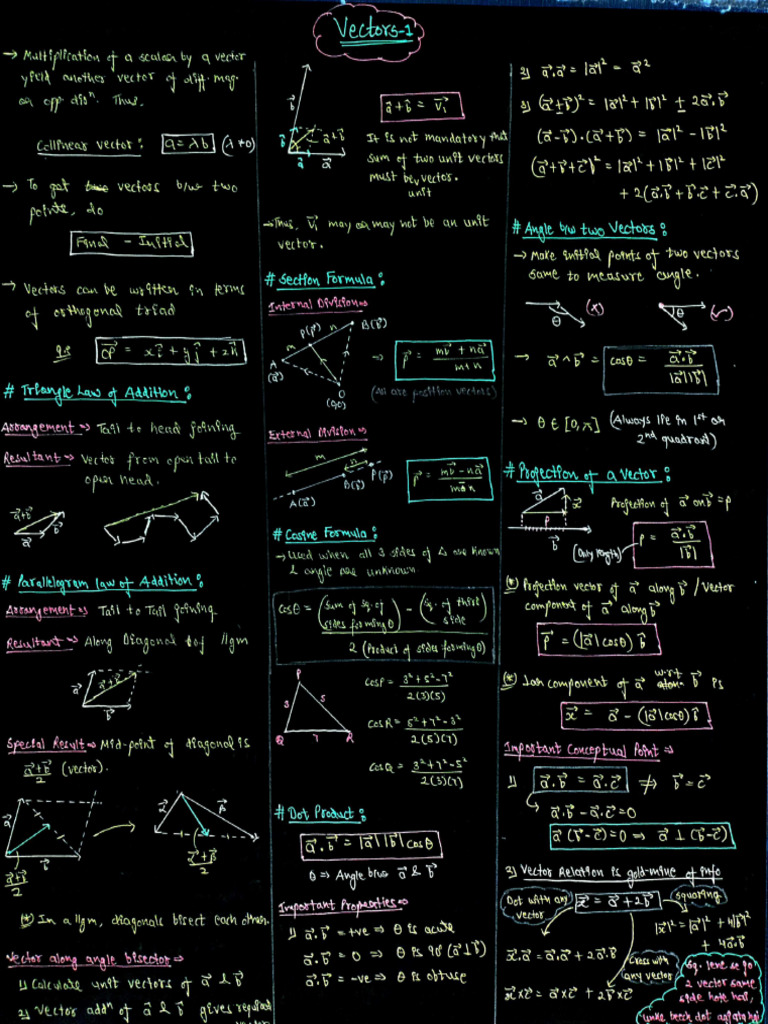 Vectors-1
→ Multiplication of a scalar by a vector
yield another vector of diff. mag.
or opp dirⁿ. Thus,
Collinear vector: a = λb (λ≠0)
→ To get vectors b/w two
points, do
Final - Initial
→ Vectors can be written in terms
of orthogonal triad
OP⃗ = xî + yĵ + zk̂
# Triangle Law of Addition:
Arrangement → Tail to head joining
Resultant → Vector from open tail to
open head.
a⃗+b⃗
b⃗
a⃗
# Parallelogram Law of Addition:
Arrangement → Tail to Tail joining
Resultant → Along Diagonal of llgm
a⃗
a⃗+b⃗
b⃗
Special Result → Mid-point of diagonal is
a⃗+b⃗/2 (vector).
a⃗
b⃗
a⃗+b⃗/2
a⃗
b⃗
a⃗+b⃗/2
(*) In a llgm, diagonals bisect each other.
Vector along angle bisector →
1) Calculate unit vectors of a⃗ & b⃗
2) Vector addⁿ of a⃗ & b⃗ gives required
vector
b⃗
a⃗+b⃗
a⃗
a⃗+b⃗ = v⃗₁
It is not mandatory that
sum of two unit vectors
must be vector.
unit
→ Thus, v⃗₁ may or may not be an unit
vector.
# Section Formula:
Internal Division →
P(p⃗) n B(b⃗)
m
A
(a⃗)
O
(0,0)
→ p⃗ = mb⃗ + na⃗/m+n
(All are position vectors)
External Division →
m
n
A(a⃗) B(b⃗) P(p⃗)
p⃗ = mb⃗ - na⃗/m-n
# Cosine Formula:
→ Used when all 3 sides of Δ are known
& angle are unknown
cosθ = (Sum of sq. of sides forming θ) - (Sq. of third side)/2 (Product of sides forming θ)
P
3 5
Q 7 R
cosP = 3²+5²-7²/2(3)(5)
cosR = 5²+7²-3²/2(5)(7)
cosQ = 3²+7²-5²/2(3)(7)
# Dot Product:
a⃗.b⃗ = |a⃗||b⃗|cosθ
θ → Angle b/w a⃗ & b⃗
Important Properties →
1) a⃗.b⃗ = +ve ⇒ θ is acute
a⃗.b⃗ = 0 ⇒ θ is 90° (a⃗⊥b⃗)
a⃗.b⃗ = -ve ⇒ θ is obtuse
2) a⃗.a⃗ = |a⃗|² = a⃗²
3) (a⃗±b⃗)² = |a⃗|²+|b⃗|² ± 2a⃗.b⃗
(a⃗-b⃗).(a⃗+b⃗) = |a⃗|²-|b⃗|²
(a⃗+b⃗+c⃗)² = |a⃗|²+|b⃗|²+|c⃗|²
+ 2(a⃗.b⃗+b⃗.c⃗+c⃗.a⃗)
# Angle b/w two Vectors:
→ Make initial points of two vectors
same to measure angle.
θ (×) θ (✓)
→ a⃗ ^ b⃗ = cosθ = a⃗.b⃗/|a⃗||b⃗|
→ θ ∈ [0,π] (Always lie in 1st or
2nd quadrant)
# Projection of a vector:
a⃗
x⃗
P
b⃗
Projection of a⃗ on b⃗ = P
(Only length)
P = a⃗.b⃗/|b⃗|
(*) Projection vector of a⃗ along b⃗ / Vector
component of a⃗ along b⃗
p⃗ = (|a⃗|cosθ) b̂
(*) ⊥ar component of a⃗ w.r.t b⃗ is
x⃗ = a⃗ - (|a⃗|cosθ) b̂
Important Conceptual Point →
1) a⃗.b⃗ = a⃗.c⃗ ⇏ b⃗=c⃗
a⃗.b⃗ - a⃗.c⃗ = 0
a⃗(b⃗-c⃗)=0 ⇒ a⃗ ⊥ (b⃗-c⃗)
2) Vector Relation is gold-mine of info
Dot with any
vector
x⃗ = a⃗+2b⃗
squaring
|x⃗|² = |a⃗|²+4|b⃗|²
+ 4a⃗.b⃗
x⃗.a⃗ = a⃗.a⃗ + 2a⃗.b⃗
Cross with
any vector
x⃗×c⃗ = a⃗×c⃗ + 2b⃗×c⃗
Sq. lene se jo
2 vector same
side hote hai,
unke beech dot aajata hai